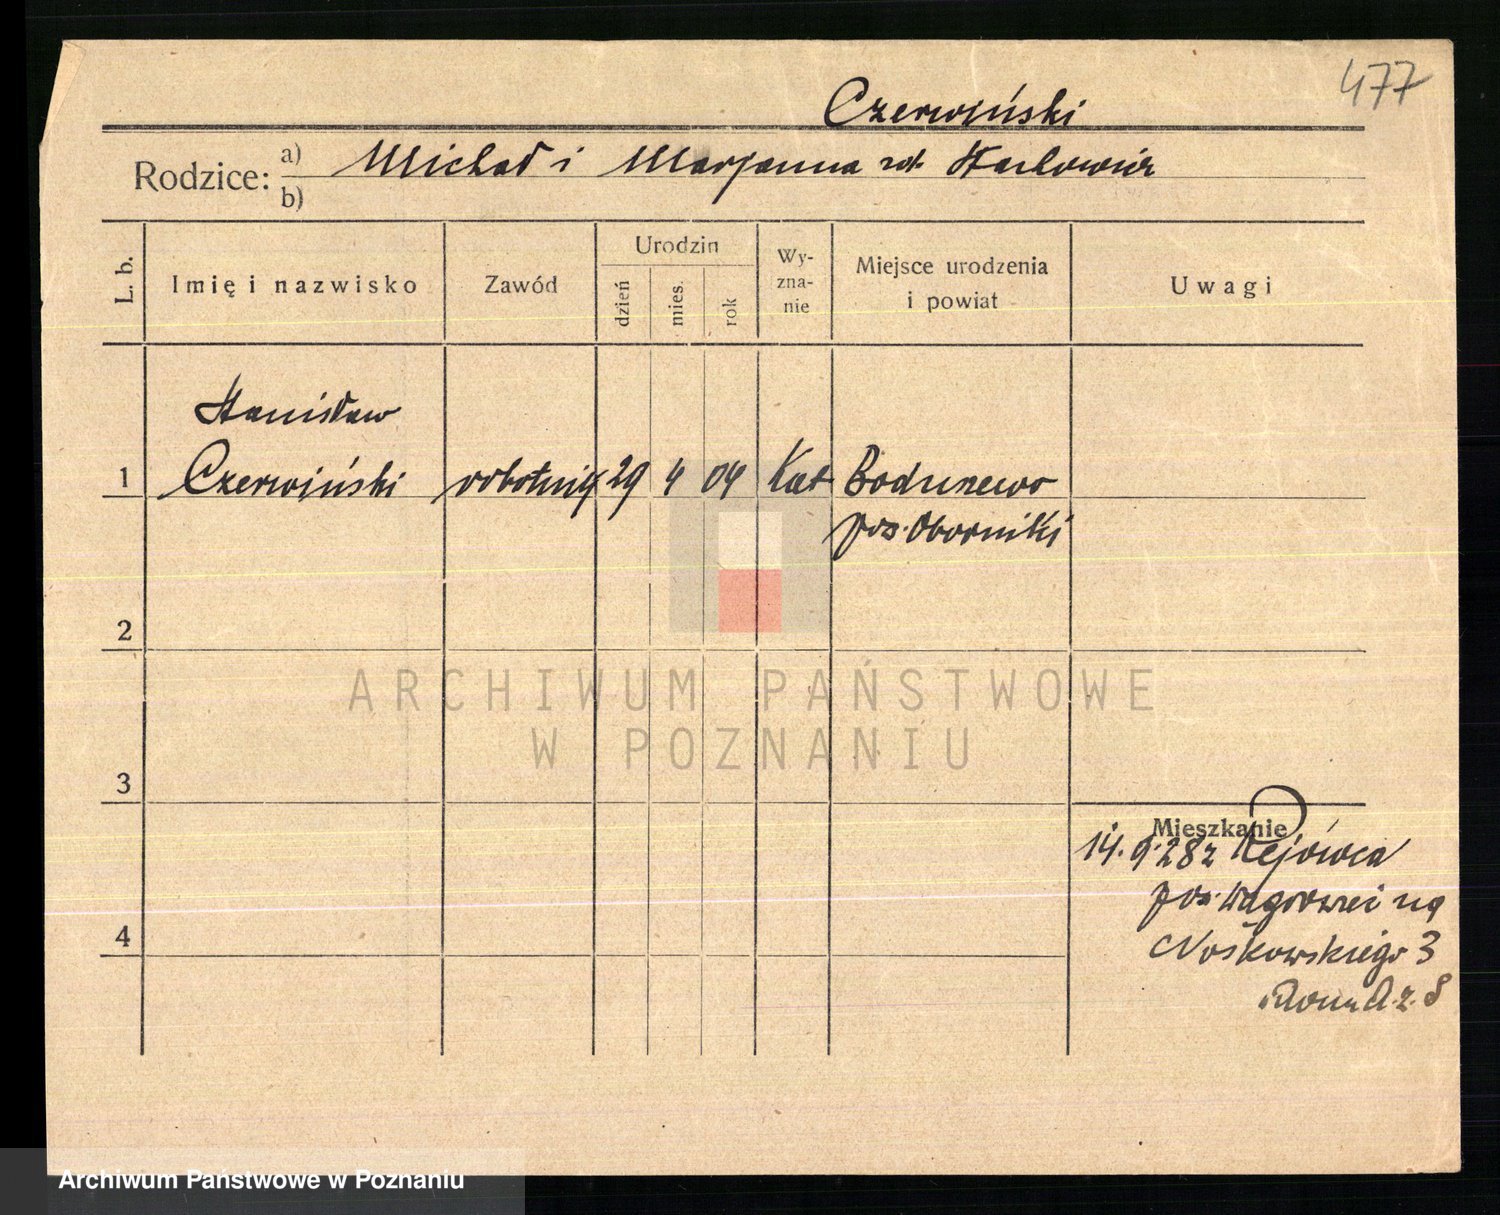 477
Czerwiński
Rodzice: a) Michał i Marjanna
b)
L. b. Imię i nazwisko Zawód Urodzin dzień mies. rok Wy-zna-nie Miejsce urodzenia i powiat Uwagi
Stanisław
1 Czerwiński robotnik 29 4 04 Kat Bodusewo
pow. Oborniki
2
ARCHIWUM PAŃSTWOWE
W POZNANIU
3
Mieszkanie
14.9.28 z
pow. na
4 Noskowskiego 3
Archiwum Państwowe w Poznaniu